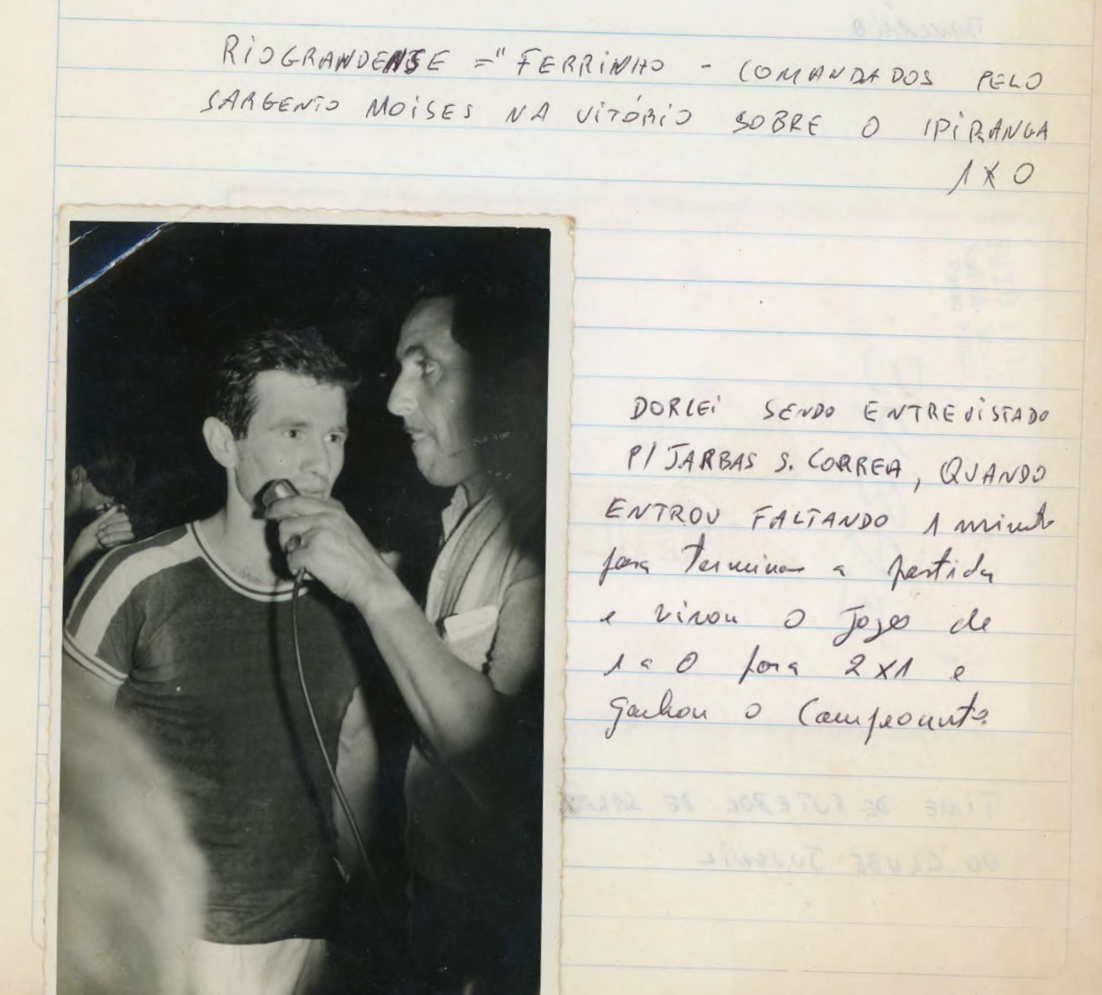 RIOGRANDENSE =" FERRINHO - COMANDADOS PELO
SARGENTO MOISES NA VITÓRIO SOBRE O IPIRANGA
1 X 0
DORLEI SENDO ENTREVISTADO
P/ JARBAS S. CORREA, QUANDO
ENTROU FALTANDO 1 minuto
para Terminar a partida
e virou o Jogo de
1 a 0 para 2 X 1 e
ganhou o Campeonato.
TIME DE FUTEBOL DE SALÃO
DO CLUBE JUVENIL